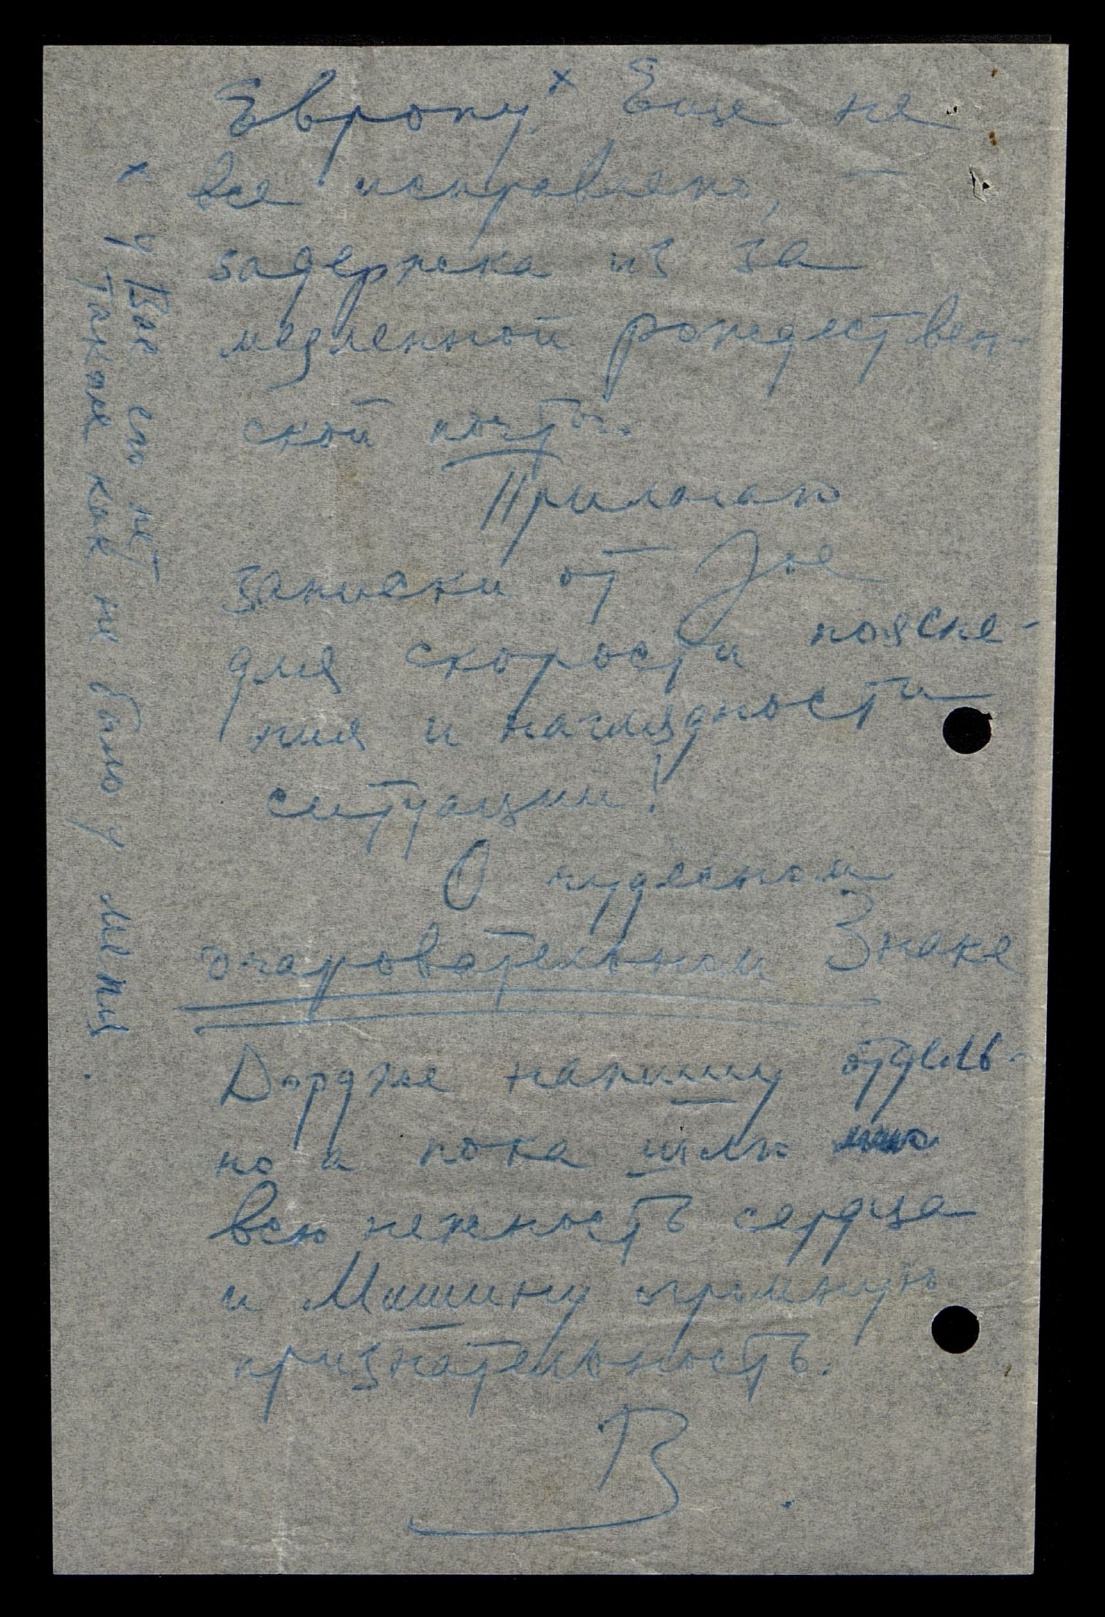 Европу.ˣ Еще не
все исправлено,
задержка из за
медленной рождествен-
ской почты.
Прилагаю
записки от Joe
для скорости поясне-
ния и наглядности
ситуации!
О чудесном
очаровательном Знаке
Дордже напишу отдель-
но а пока шлю
всю нежность сердца
и Машину огромную
признательность.
В
x У Вас его нет
также как не было у меня.